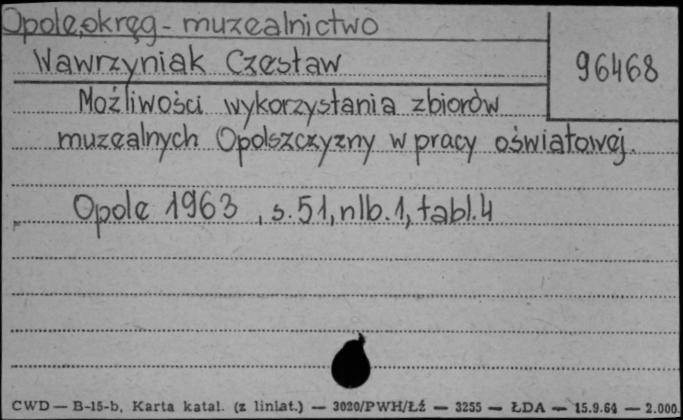 Opole, okręg - muzealnictwo
Wawrzyniak Czesław
96468
Możliwości wykorzystania zbiorów
muzealnych Opolszczyzny w pracy oświatowej.
Opole 1963, s. 51, nlb. 1, tabl. 4
CWD — B-15-b, Karta katal. (z liniat.) — 3020/PWH/Łź — 3255 — ŁDA — 15.9.64 — 2.000